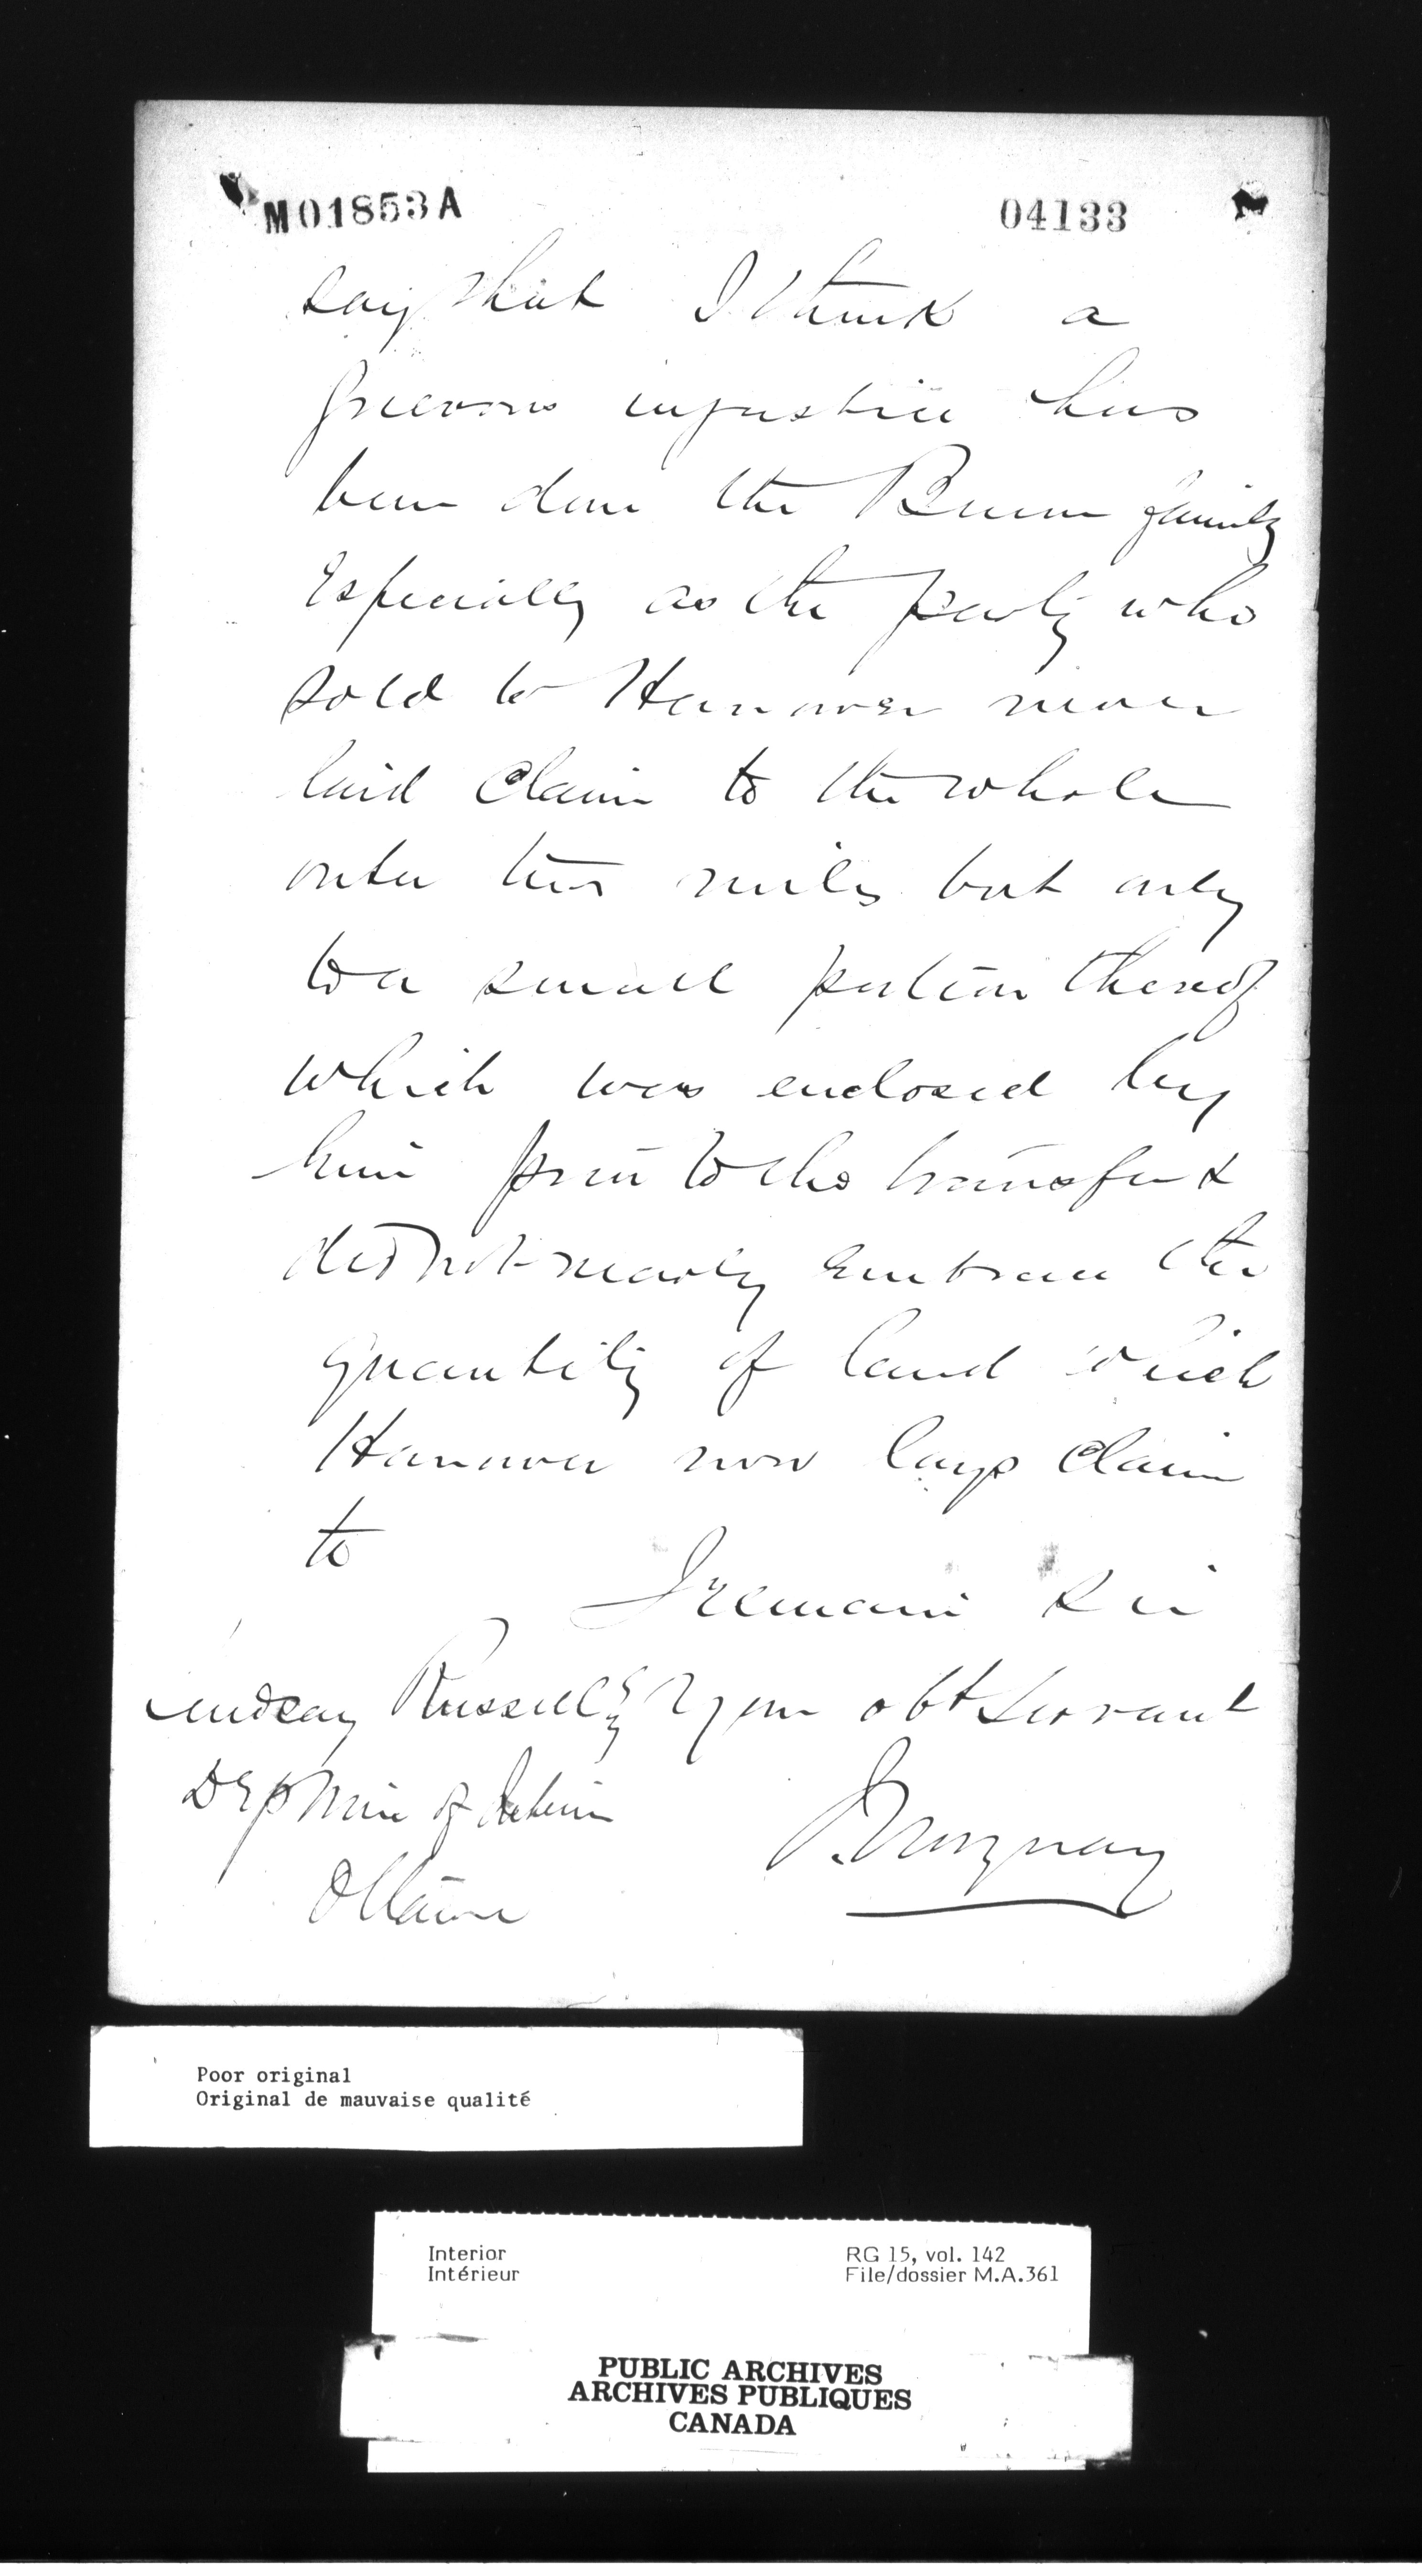 M01853A 04133
say that I think a
grievous injustice has
been done the Bunn family
Especially as the party who
sold to Hanover never
laid claim to the whole
outer two miles but only
to a small portion thereof
which was enclosed by
him prior to the transfer &
did not nearly embrace the
quantity of land which
Hanover now lays claim
to
I remain Sir
Lindsay Russell Esq your obt servant
Dep Min of Interior
Ottawa
Poor original
Original de mauvaise qualité
Interior RG 15, vol. 142
Intérieur File/dossier M.A.361
PUBLIC ARCHIVES
ARCHIVES PUBLIQUES
CANADA